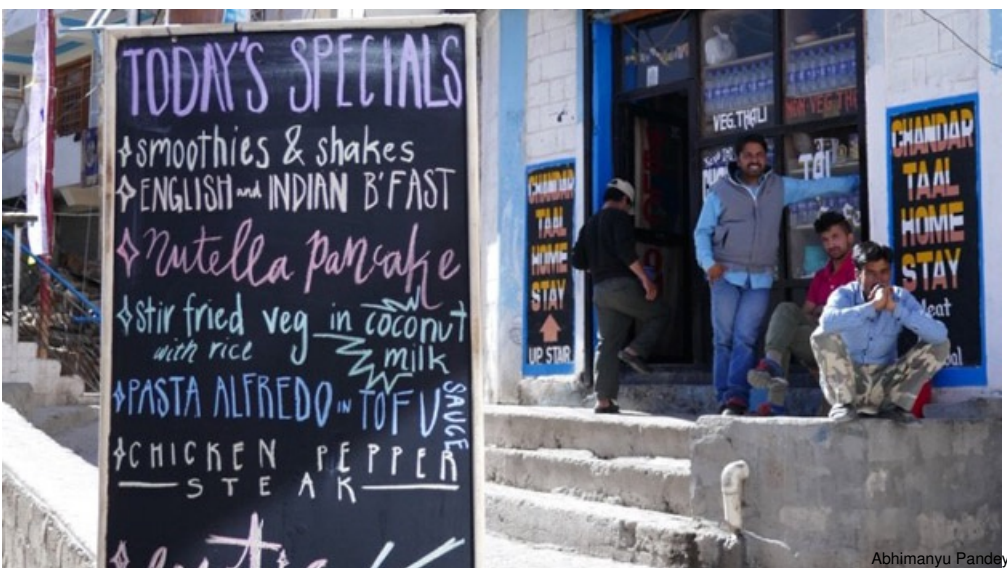 TODAY'S SPECIALS
smoothies & shakes
ENGLISH and INDIAN B'FAST
Nutella pancake
Stir fried veg in coconut
with rice milk
PASTA ALFREDO IN TOFU SAUCE
CHICKEN PEPPER
STEAK
CHANDAR
TAAL
HOME
STAY
UP STAIR
VEG. THALI
NON VEG. TH
CHANDAR
TAAL
HOME
STAY
Abhimanyu Pandey